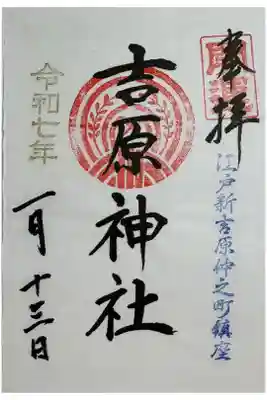 奉拝
江戸新吉原仲之町鎮座
吉原神社
令和七年
一月十三日